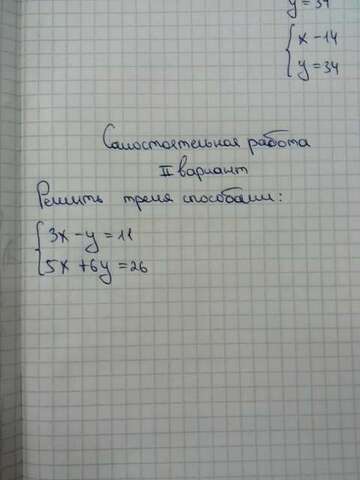 y=34
x-14
y=34
Самостоятельная работа
II вариант
Решить тремя способами:
3x-y=11
5x+6y=26